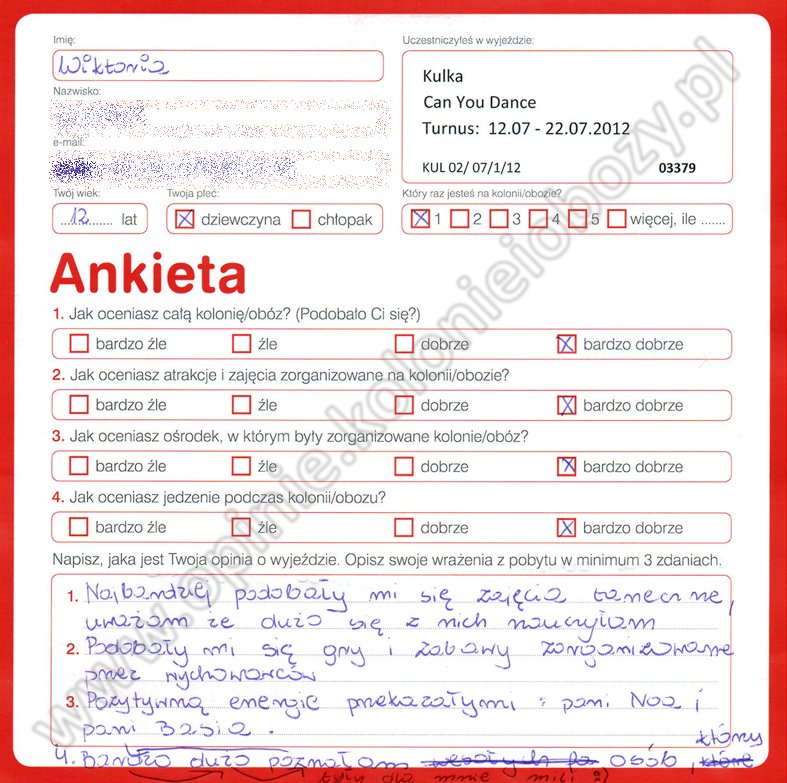 Imię:
Wiktoria
Nazwisko:
e-mail:
Twój wiek:
12 lat
Twoja płeć:
dziewczyna chłopak
Uczestniczyłeś w wyjeździe:
Kulka
Can You Dance
Turnus: 12.07 - 22.07.2012
KUL 02/ 07/1/12 03379
Który raz jesteś na kolonii/obozie?
1 2 3 4 5 więcej, ile .......
Ankieta
1. Jak oceniasz całą kolonię/obóz? (Podobało Ci się?)
bardzo źle źle dobrze bardzo dobrze
2. Jak oceniasz atrakcje i zajęcia zorganizowane na kolonii/obozie?
bardzo źle źle dobrze bardzo dobrze
3. Jak oceniasz ośrodek, w którym były zorganizowane kolonie/obóz?
bardzo źle źle dobrze bardzo dobrze
4. Jak oceniasz jedzenie podczas kolonii/obozu?
bardzo źle źle dobrze bardzo dobrze
Napisz, jaka jest Twoja opinia o wyjeździe. Opisz swoje wrażenia z pobytu w minimum 3 zdaniach.
1. Najbardziej podobały mi się zajęcia taneczne,
uważam ze dużo się z nich nauczyłam
2. Podobały mi się gry i zabawy zorganizowane
przez wychowawców
3. Pozytywną energię przekazałymi : pani Noa i
pani Basia .
4. Bardzo dużo poznałam osób , który
były dla mnie mili :)
www.opinie.kolonieiobozy.pl